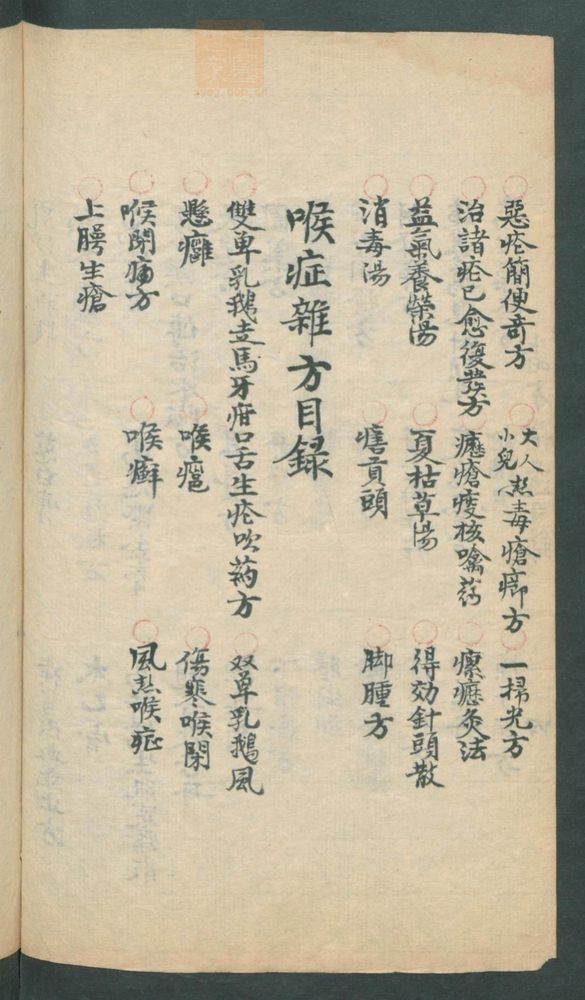 惡疮簡便奇方　大人小兒热毒瘡癤方　一掃光方
治諸疮已愈復發方　瘰瘡痰核噙药　瘰癧灸法
益氣養榮湯　夏枯草湯　得効針頭散
消毒湯　贡頭　脚腫方
喉症雜方目録
雙单乳鵝走馬牙疳口舌生疮吹药方　双单乳鵝風
懸癰　喉疮　傷寒喉閉
喉閉痛方　喉癬　風热喉症
上腭生瘡